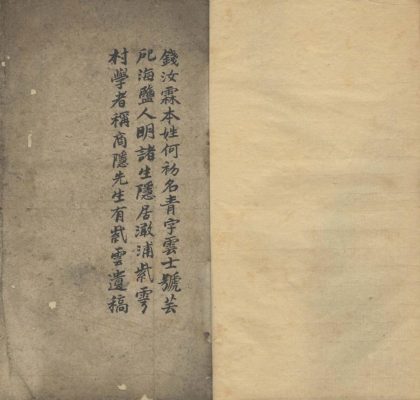 錢汝霖本姓何初名青字雲士號芸
𠃵海鹽人明諸生隱居澉浦紫雲
村學者稱商隱先生有紫雲遺稿